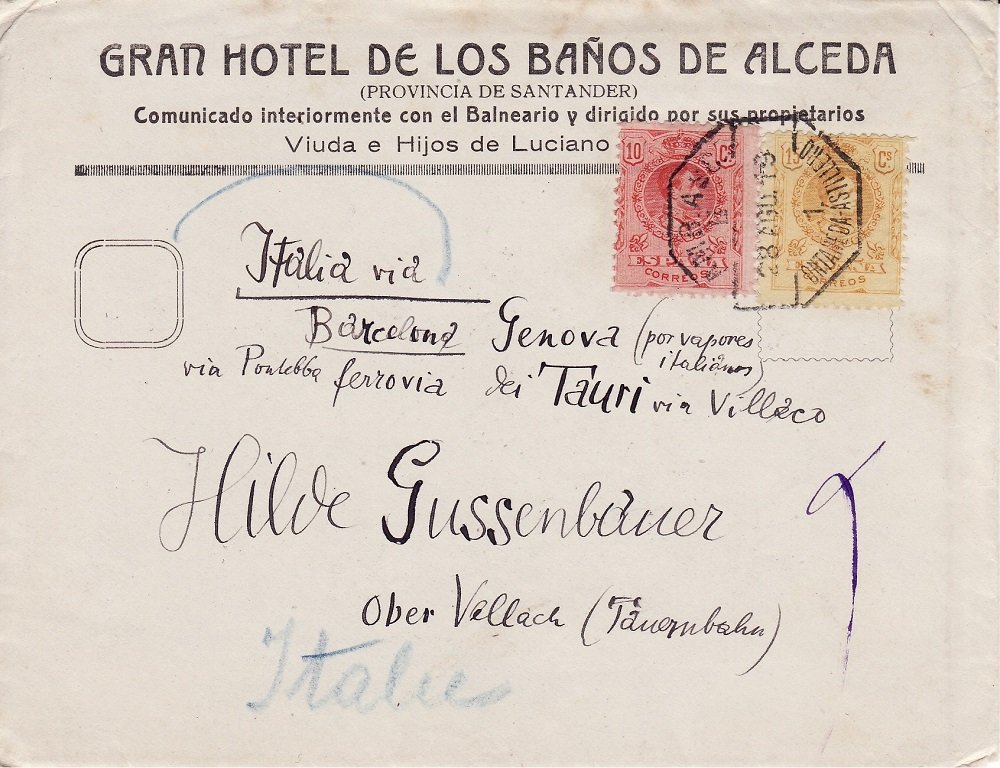 GRAN HOTEL DE LOS BAÑOS DE ALCEDA
(PROVINCIA DE SANTANDER)
Comunicado interiormente con el Balneario y dirigido por sus propietarios
Viuda e Hijos de Luciano
10 Cs
ESPAÑA
CORREOS
15 Cs
CORREOS
28 AGO 13
ONTANEDA-ASTILLERO
1
Italia via
Barcelona Genova (por vapores italianos)
via Pontebba ferrovia dei Tauri via Villaco
Hilde Gussenbauer
Ober Vellach (Tauernbahn)
Italie